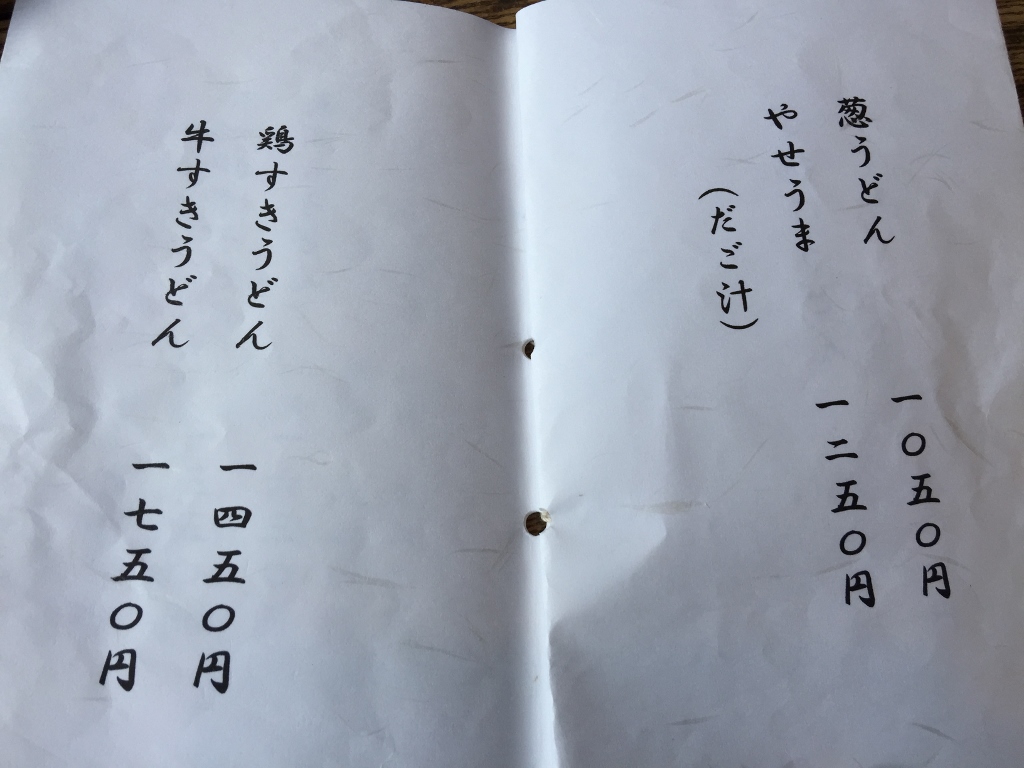 葱うどん 一〇五〇円
やせうま 一二五〇円
(だご汁)
鶏すきうどん 一四五〇円
牛すきうどん 一七五〇円